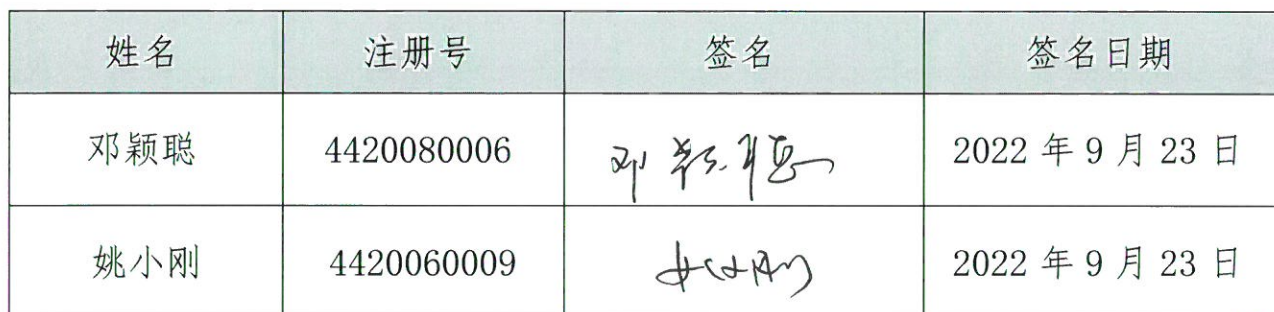 姓名 注册号 签名 签名日期
邓颖聪 4420080006 邓颖聪 2022 年 9 月 23 日
姚小刚 4420060009 姚小刚 2022 年 9 月 23 日